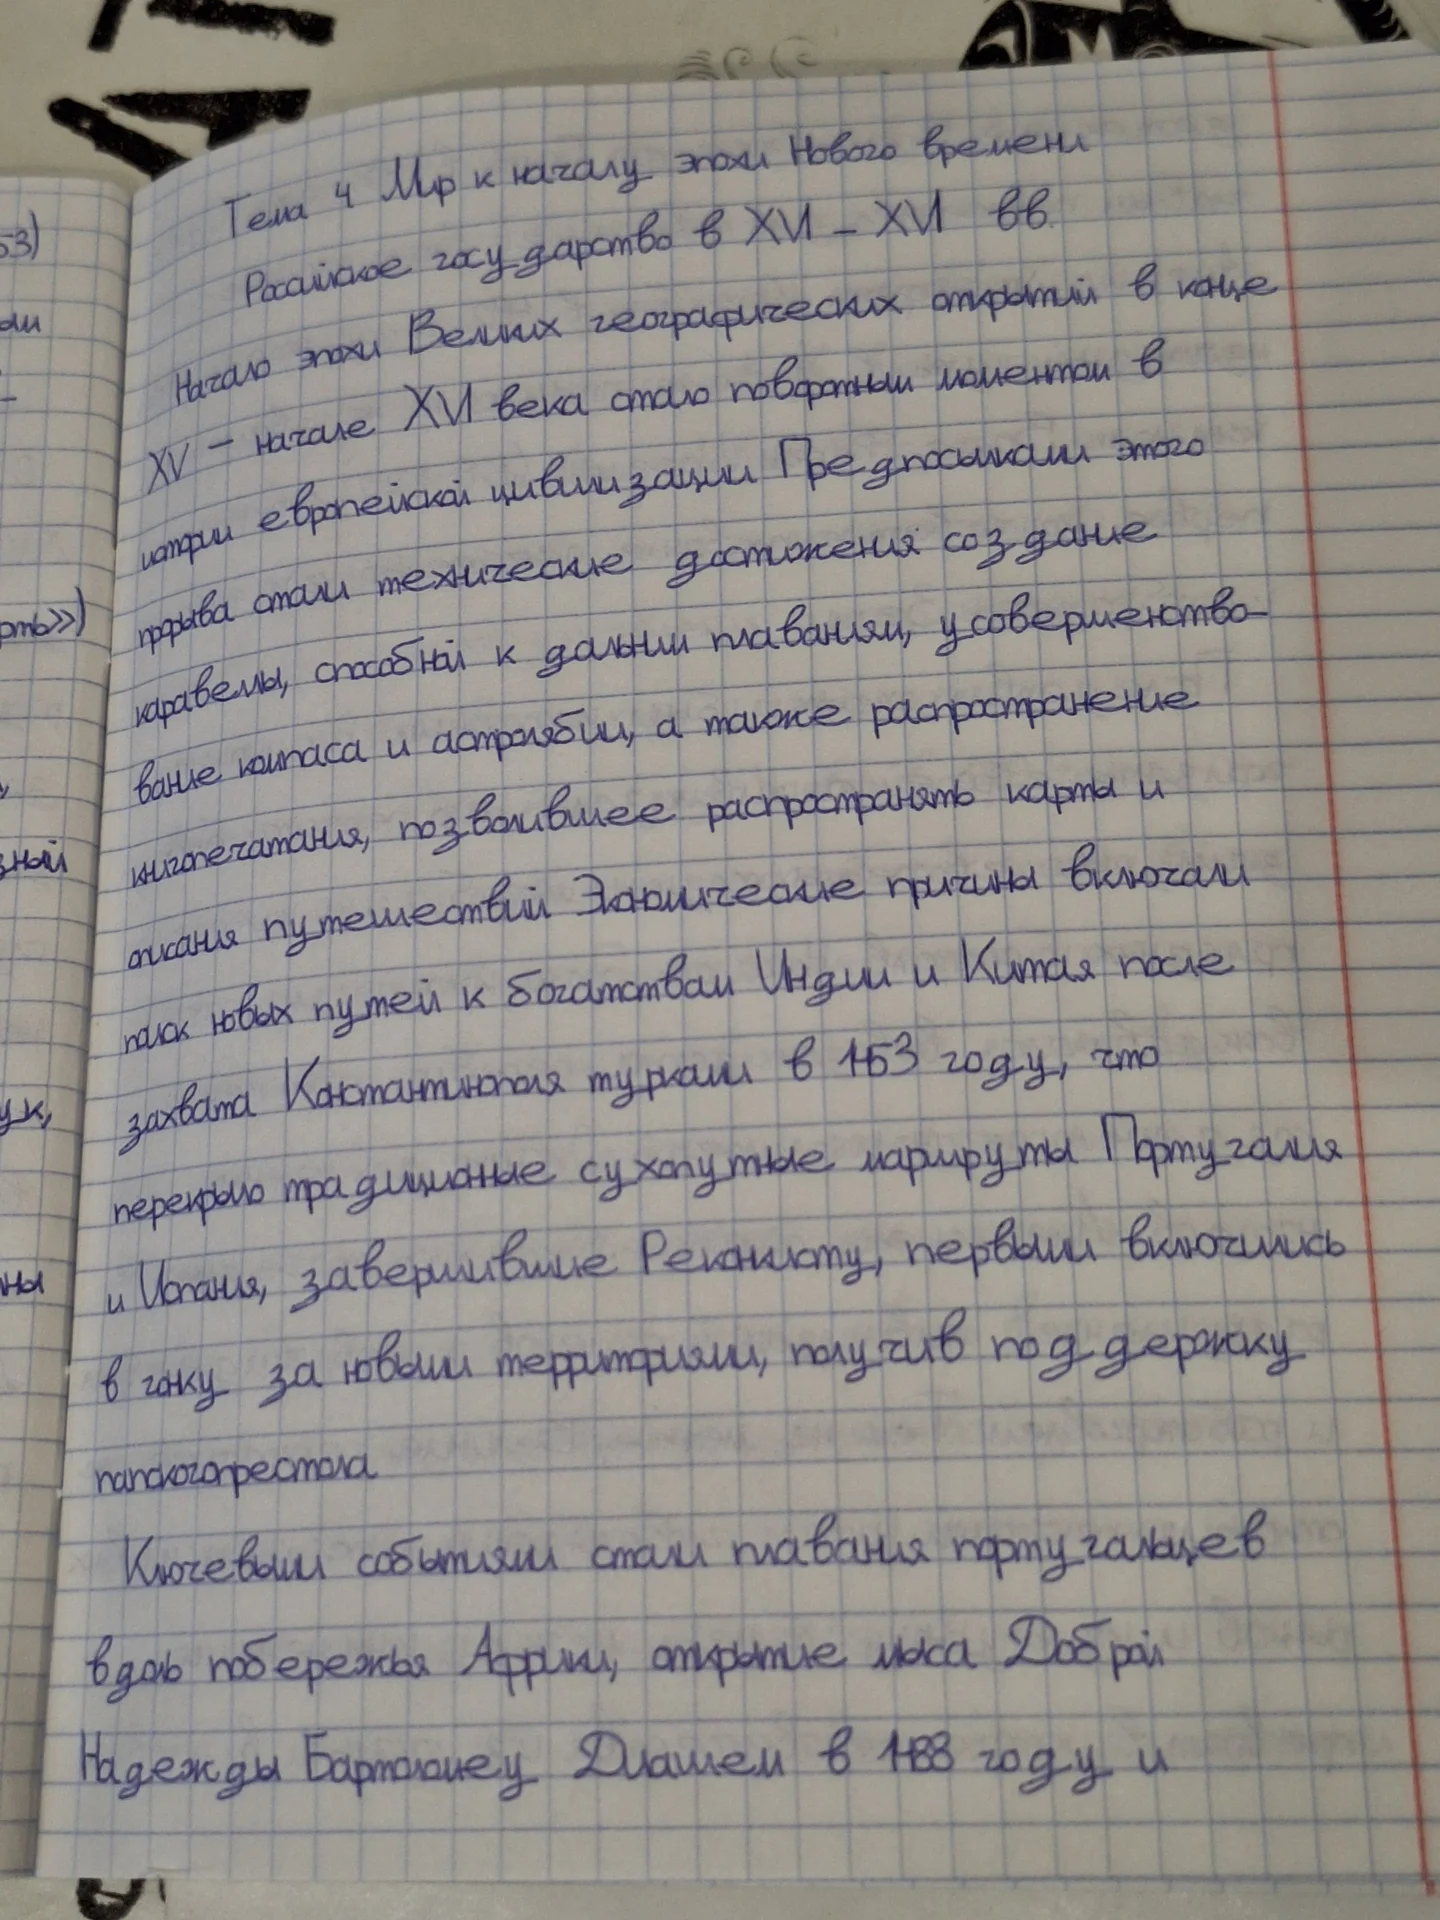 Тема 4 Мир к началу эпохи Нового времени
Российское государство в XVI – XVI вв.
Начало эпохи Великих географических открытий в конце
XV – начале XVI века стало поворотным моментом в
истории европейской цивилизации Предпосылками этого
прорыва стали технические достижения создание
каравеллы, способной к дальним плаваниям, усовершенство-
вание компаса и астролябии, а также распространение
книгопечатания, позволившее распространять карты и
описания путешествий Экономические причины включали
поиск новых путей к богатствам Индии и Китая после
захвата Константинополя турками в 1453 году, что
перекрыло традиционные сухопутные маршруты Португалия
и Испания, завершившие Реконкисту, первыми включились
в гонку за новыми территориями, получив поддержку
папскогопрестола
Ключевыми событиями стали плавания португальцев
вдоль побережья Африки, открытие мыса Доброй
Надежды Бартоломеу Диашем в 1488 году и
53)
ыми
рть»)
зный
ук,
ны